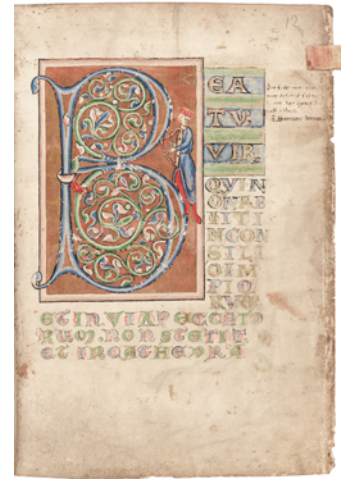 B
EA
TV.
VIR.
QVIN
ONAB
IITI
NCON
SILI
OIM
PIO
RVM
ETINVIAPECCATO
RVM. NON STETIT
ET INCATHEDRA